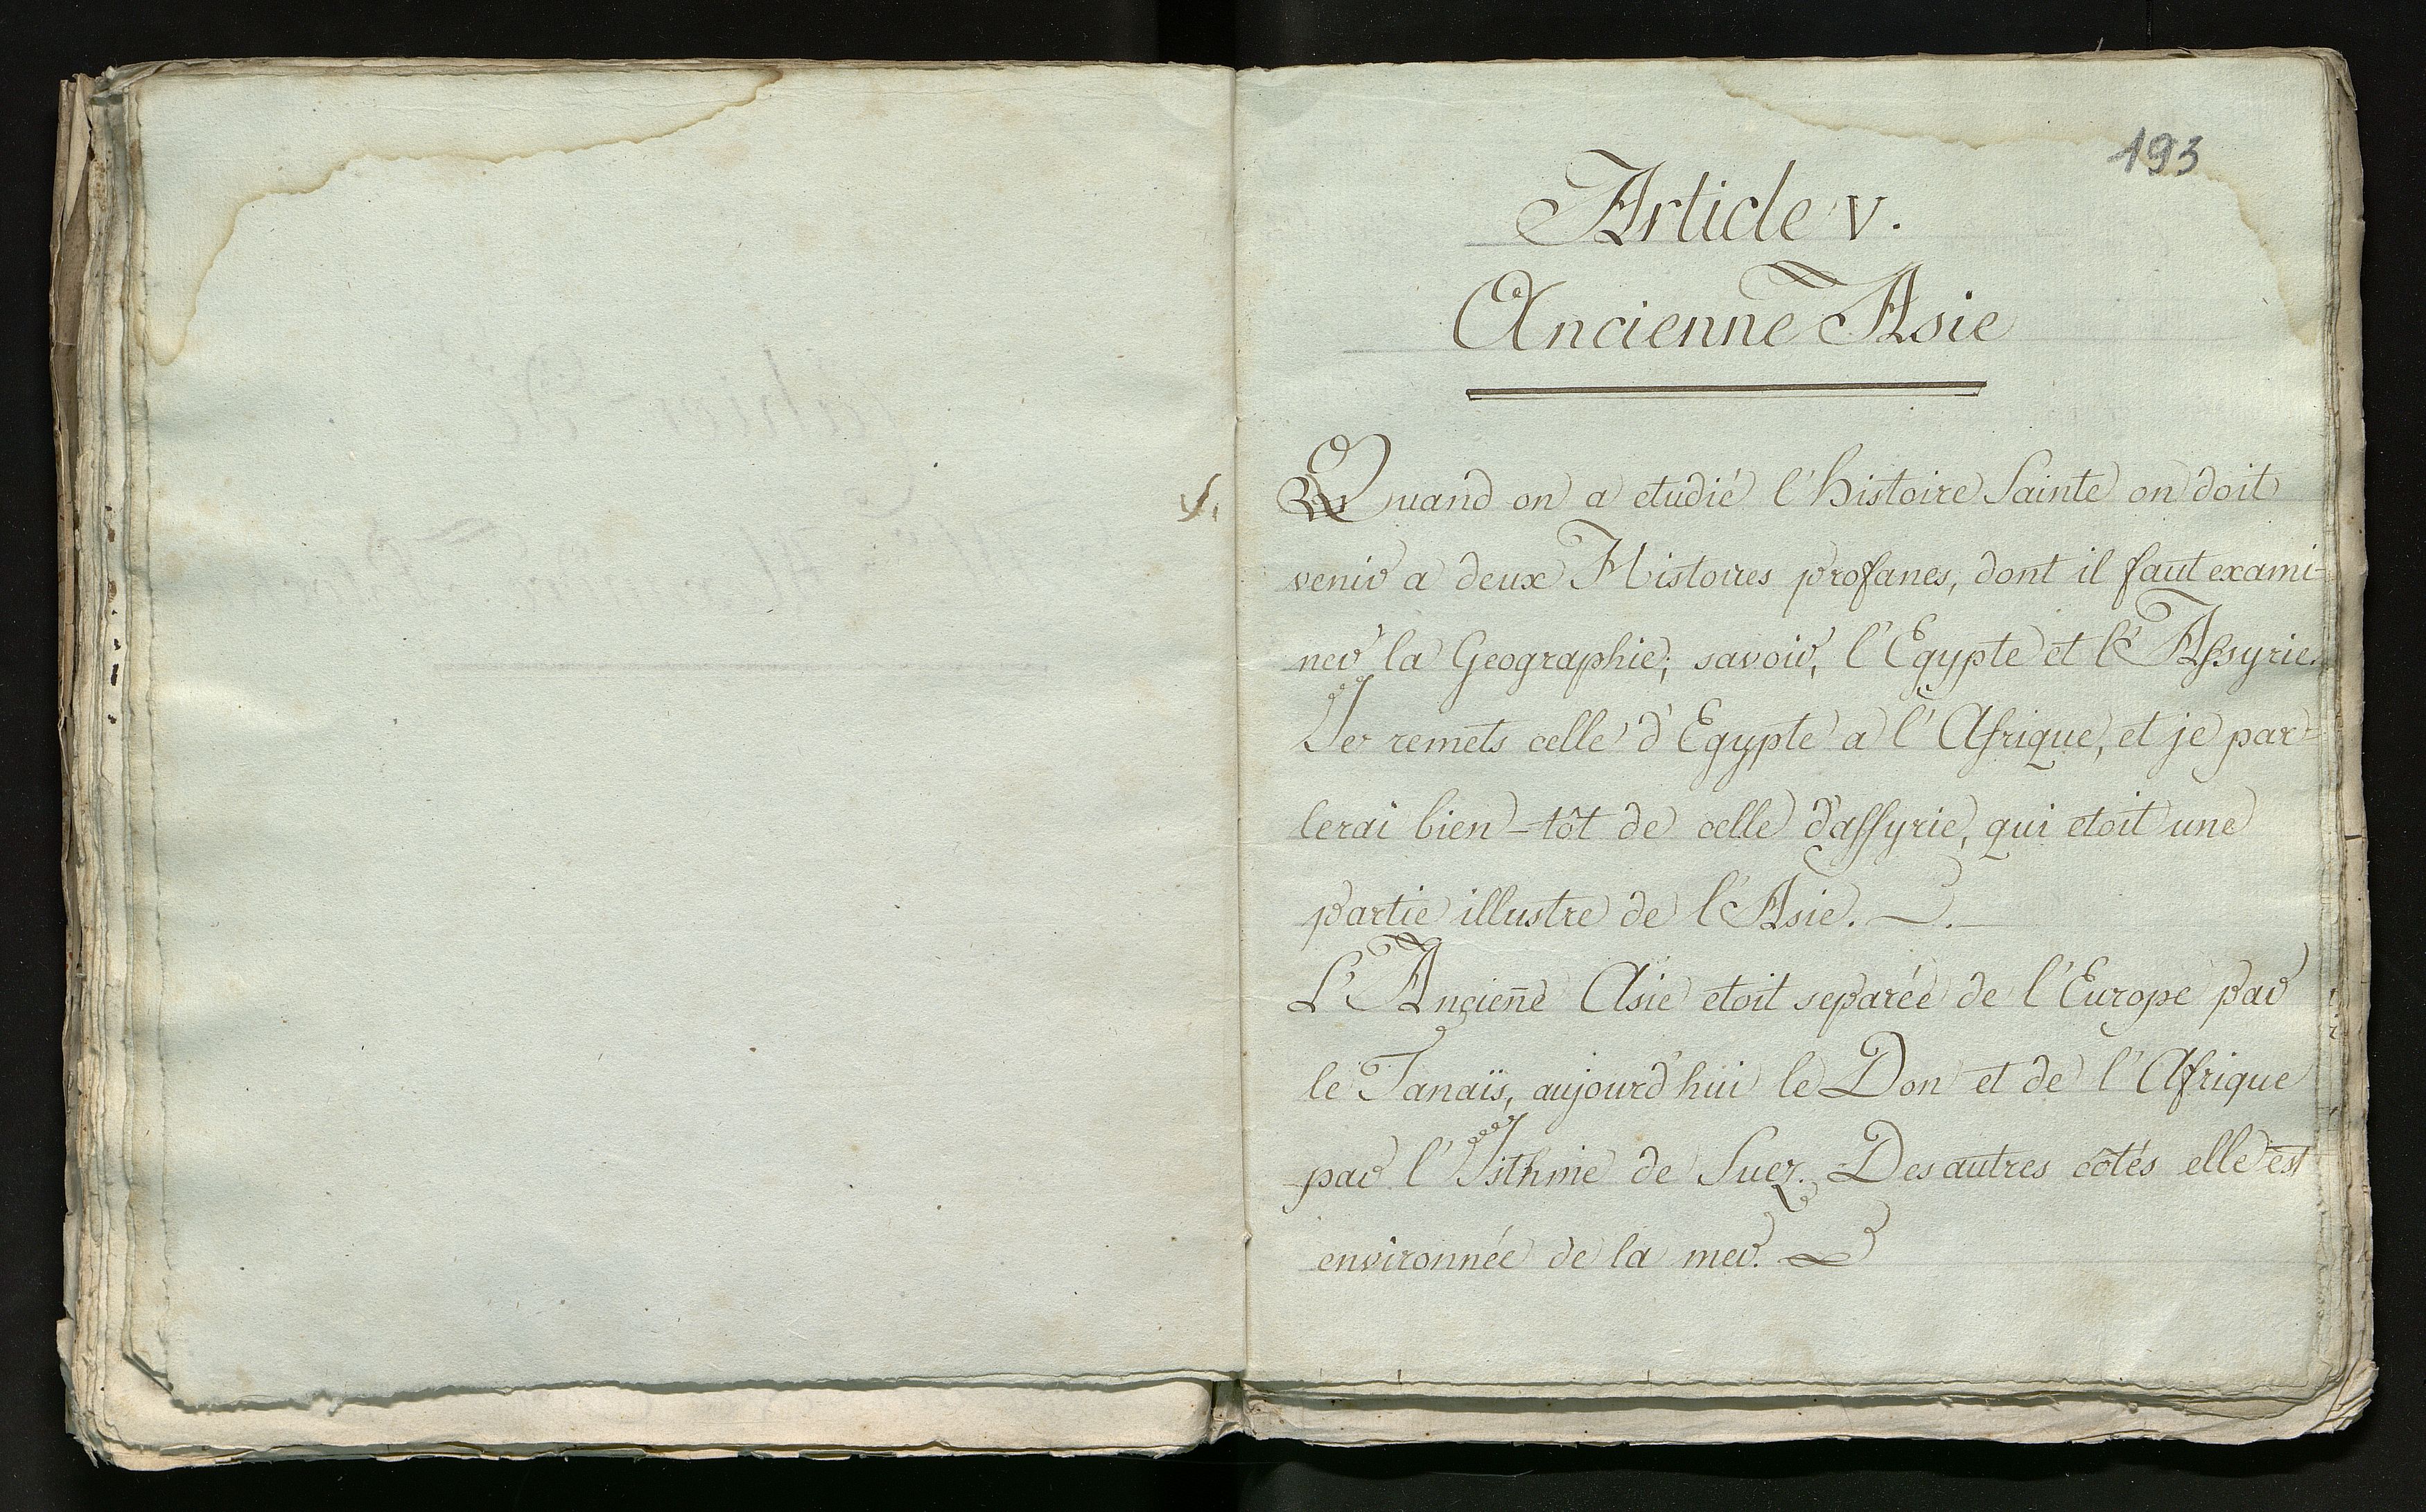 193
Article V.
Ancienne Asie
Quand on a etudié l'histoire Sainte on doit
venir a deux Histoires profanes, dont il faut exami-
ner la Geographie; savoir, l'Egypte et l'Assyrie.
Je remets celle d'Egypte a l'Afrique, et je par-
lerai bien-tôt de celle d'assyrie, qui etoit une
partie illustre de l'Asie.
L'Ancieñe Asie etoit separée de l'Europe par
le Tanaïs, aujourd'hüi le Don et de l'Afrique
par l'Isthme de Suez. Des autres côtés elle est
environnée de la mer.